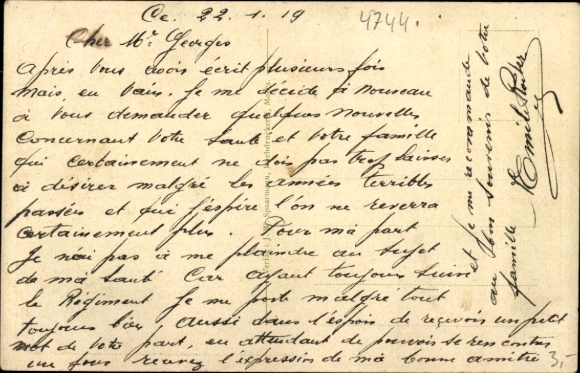 Ce. 22.1.19
4744.
Cher Mr. Georges
Après vous avois écrit plusieurs fois
mais en vain. Je me decide à nouveau
à vous demander quelques nouvelles
concernant votre santé et votre famille
qui certainement ne dois pas trop laisser
à désirer malgré les années terribles
passées et que j'espère l'on ne reverra
certainement plus. Pour ma part
Je n'ai pas à me plaindre au sujet
de ma santé Car ayant toujours suivi
le Régiment Je me porte malgré tout
toujours bien aussi dans l'espoir de reçevois un petit
mot de votre part, en attendant de pouvoir se rencontrer
un jour recevez l'expression de ma bonne amitié
et je me recommande
au bon souvenir de votre
famille
Emile
3,-